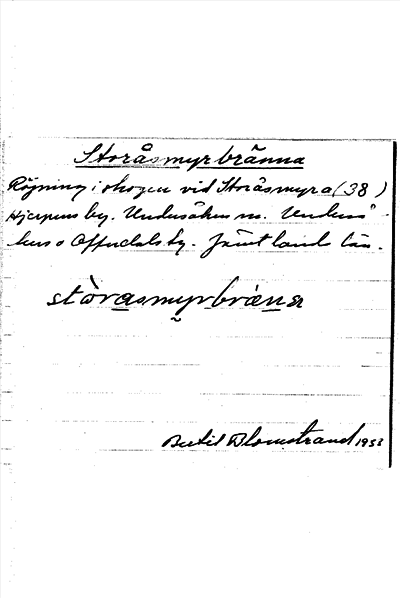 Storåsmyrbränna
Röjning i skogen vid Storåsmyra (38)
Hjerpens by. Undersåkers sn. Undersåkers o Offerdals tg. Jämtlands län.
stòrasmyrbräna
Bertil Blomstrand 1953